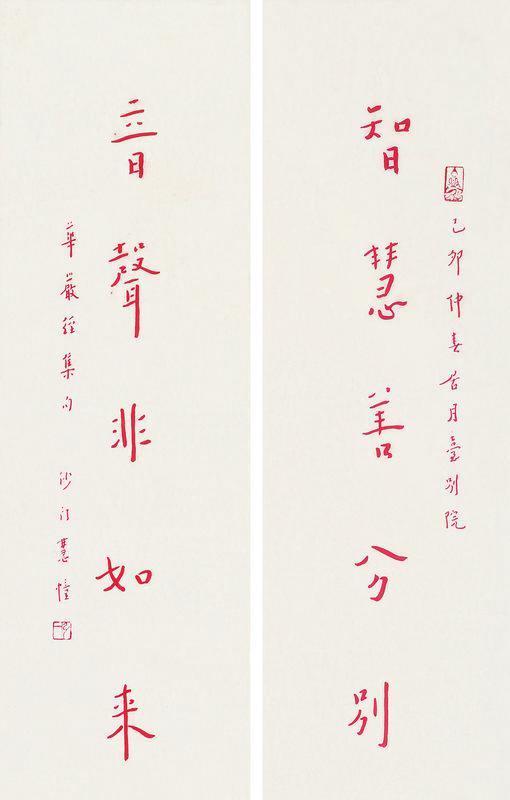 己卯仲春居月臺別院
智慧善分別
音聲非如来
華嚴經集句
沙门慧